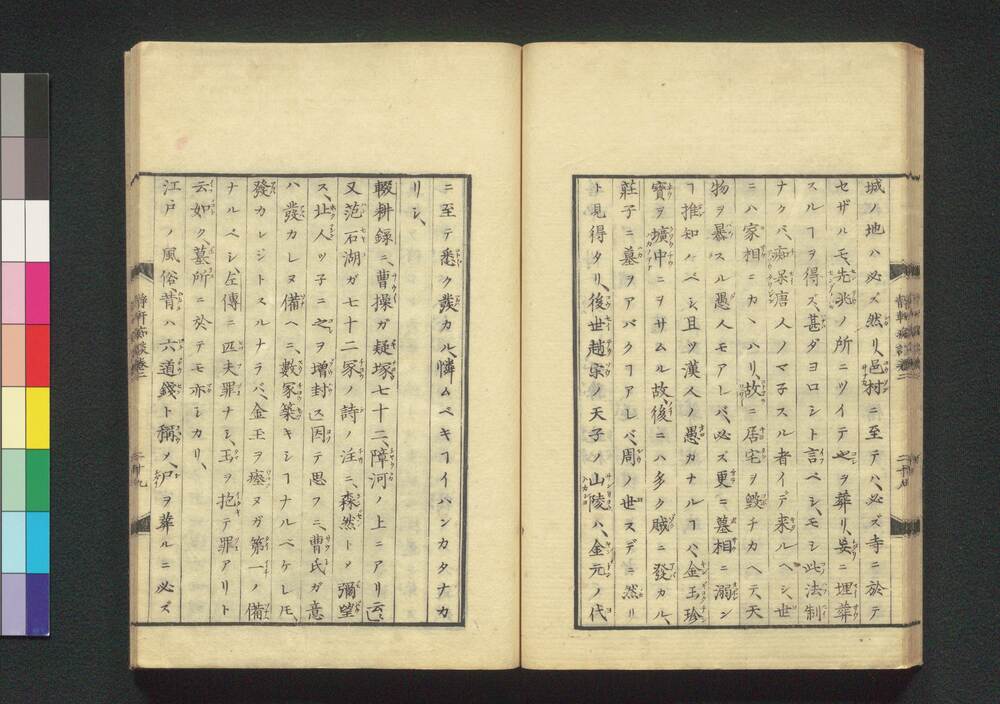 城ノ地ハ必ズ然リ、邑村ニ至テハ、必ズ寺ニ於テ
セザルモ、先兆ノ所ニツイテ之ヲ葬リ、妄ニ埋葬
スルヿヲ得ズ、甚ダヨロシト言ベシ、モシ此法制
ナクバ、痴呆唐人ノマ子スル者イデ来ルヘシ、世
ニハ家相ニカヽハリ、故ニ居宅ヲ毀チカヘテ、天
物ヲ暴スル愚人モアレバ、必ズ更ニ墓相ニ溺ン
ヿ推知スベシ、且ツ漢人ノ愚カナルヿハ、金玉珍
寶ヲ壙中ニヲサムル故、後ニハ多ク賊ニ發カル、
莊子ニ墓ヲアバクヿアレバ、周ノ世スデニ然リ
ト見得タリ、後世趙宋ノ天子ノ山陵ハ、金元ノ代
ニ至テ悉ク發カル、憐ムベキヿイハンカタナカ
リシ、
輟耕録ニ、曹操ガ疑塚七十二、障河ノ上ニアリ云
又范石湖ガ七十二冢ノ詩ノ注ニ、森然トメ彌望
ス、北人ツ子ニ之ヲ増封ス、因テ思フニ、曹氏ガ意
ハ發カレヌ備ヘニ、數冢築キシヿナルベケレ𪜈、
發カレジトスルナラバ、金玉ヲ瘞ヌガ第一ノ備
ナルベシ、左傳ニ匹夫罪ナシ、玉ヲ抱テ罪アリト
云如ク、墓所ニ於テモ亦シカリ、
江戸ノ風俗、昔ハ六道錢ト稱メ、尸ヲ葬ルニ必ズ
静軒痴談巻二